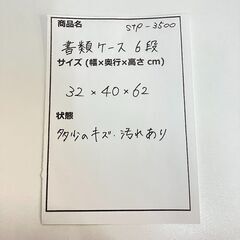 商品名 STP-3500
書類ケース 6段
サイズ (幅×奥行×高さ cm)
32×40×62
状態
多少のキズ・汚れあり